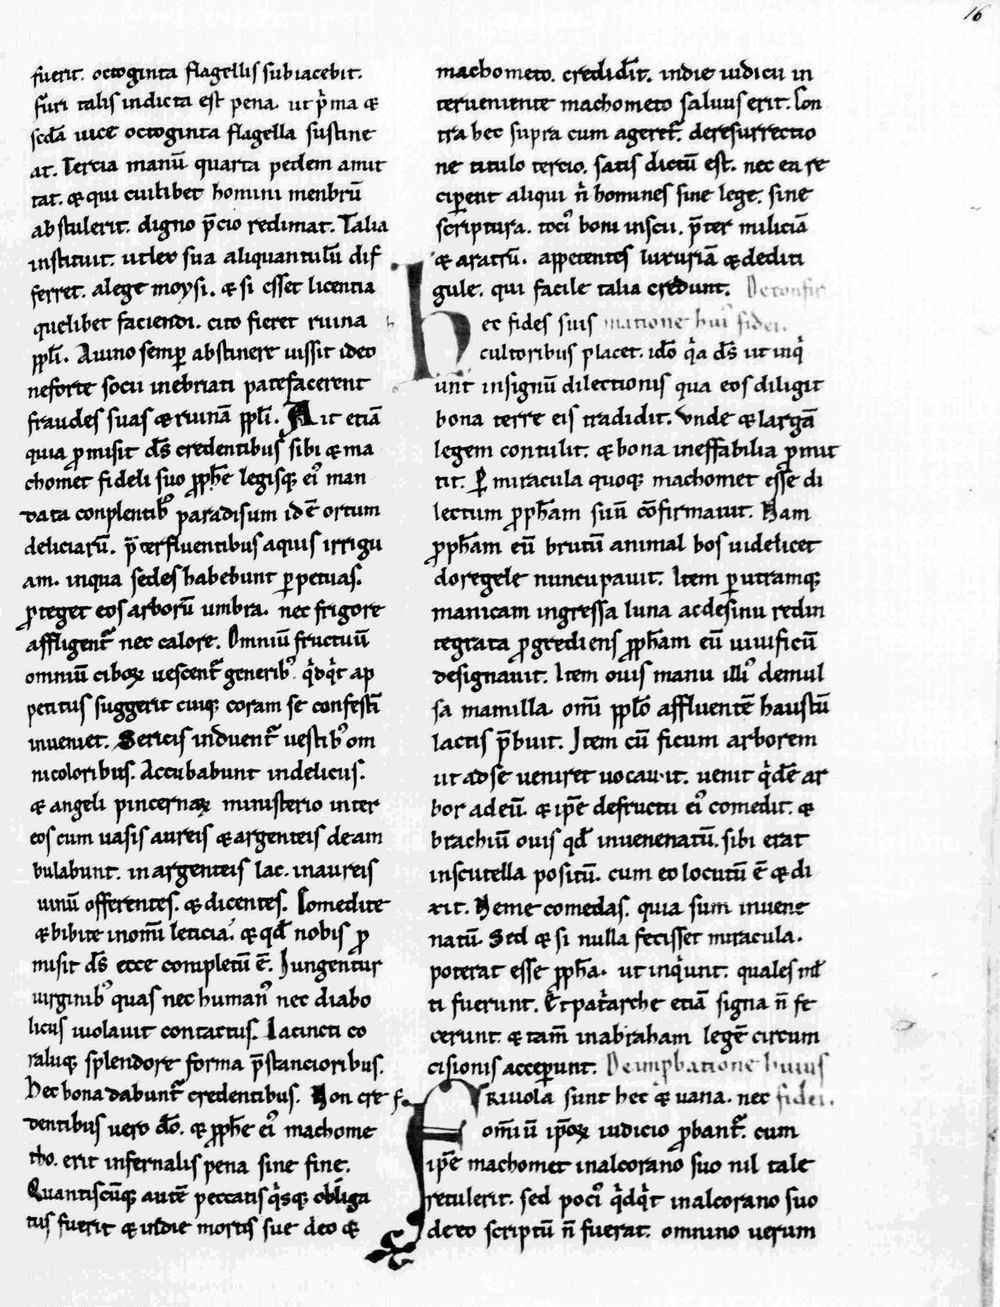 16
fuerit. octoginta flagellis subiacebit.
Furi talis indicta est pena. ut p̄ma &
scđa uice octoginta flagella sustine
at. Tercia manū quarta pedem amit
tat. & qui cuilibet homini menbrū
abstulerit. digno p̄cio redimat. Talia
instituit. ut lex sua aliquantulū dif
ferret. a lege moysi. & si esset licentia
quelibet faciendi. cito fieret ruina
ppl̄i. A uino semꝑ abstinere iussit ideo
ne forte socii inebriati patefacerent
fraudes suas & ruinā ppl̄i. Ait etiā
quia ꝓmisit d̄s credentibus sibi & ma
chomet fideli suo ꝓph̄e legisq; ei' man
data conplentib' paradisum id ē ortum
deliciarū. p̄terfluentibus aquis irrigu
am. in qua sedes habebunt ꝑpetuas.
ꝓteget eos arborū umbra. nec frigore
affligent̄ nec calore. Omniū fructuū
omniū ciboꝝ uescent̄ generib'. q̇dq̇t ap
petitus suggerit cuiq; coram se confestī
inueniet. Sericis induent̄ uestib' om
nicoloribus. Accubabunt in deliciis.
& angeli pincernaꝝ ministerio inter
eos cum uasis aureis & argenteis deam
bulabunt. in argenteis lac. in aureis
uinū offerentes. & dicentes. Comedite
& bibite in om̄i leticia. & qđ nobis ꝓ
misit d̄s ecce completū ē. Iungentur
uirginib' quas nec human' nec diabo
licus uiolauit contactus. Iacincti co
raliq; splendore forma p̄stancioribus.
Hec bona dabunt̄ credentibus. Non cre
dentibus uero dō. & ꝓph̄e ei' machome
tho. erit infernalis pena sine fine.
Quantiscūq; autē peccatis q̇sq; obliga
tus fuerit & in die mortis sue deo &
machometo. credidīt. in die iudicii in
terueniente machometo saluus erit. Con
tra hec supra cum ageret̄. de resurrectio
ne titulo tercio. satis dictū est. nec ea re
ciꝑent aliqui n̄ homines sine lege. sine
scriptura. toci' boni inscii. p̄ter miliciā
& aratrū. appetentes luxuriā & dediti
gule. qui facile talia credunt. De confir
Hec fides suis matione hui' fidei.
cultoribus placet. idō q̇a d̄s ut inq̇
unt in signū dilectionis qua eos diligit
bona terre eis tradidit. Vnde & largā
legem contulit. & bona ineffabilia ꝓmit
tit. Ꝑ miracula quoq; machomet esse di
lectum ꝓph̄am suū cōfirmauit. Nam
ꝓph̄am eū brutū animal bos uidelicet
doregele nuncupauit. Item ꝑ utramq;
manicam ingressa luna ac de sinu redin
tegrata ꝓgrediens ꝓph̄am eū uiuificū
designauit. Item ouis manu illi' demul
sa mamilla. om̄i ppl̄o affluentē haustū
lactis p̄buit. Item cū ficum arborem
ut ad se ueniret uocauit. uenit q̇dē ar
bor ad eū. & ip̄e de fructu ei' comedit. &
brachiū ouis qđ inuenenatū. sibi erat
in scutella positū. cum eo locutū ē & di
xit. Ne me comedas. quia sum inuene
natū. Sed & si nulla fecisset miracula.
poterat esse ꝓph̄a. ut inq̇unt. quales ml̄
ti fuerunt. Et pat̄arche etiā signa n̄ fe
cerunt. & tam̄ in abraham legē circum
cisionis acceꝑunt. De inp̄batione huius
FRIUOLA sunt hec & uana. nec fidei.
om̄iū ip̄oꝝ iudicio ꝓbant̄. cum
ip̄e machomet in alcorano suo nil tale
retulerit. sed poci' q̇dq̇t in alcorano suo
de eo scriptū n̄ fuerat. omnino uerum